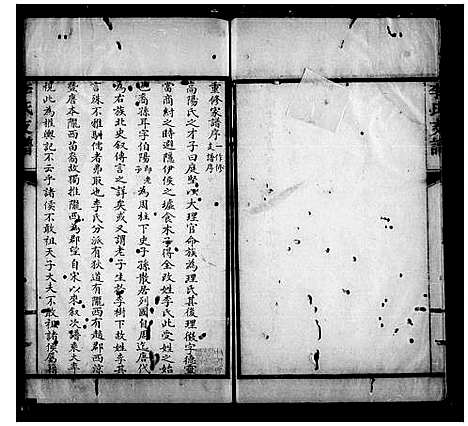 重修家譜序一作修支譜序
高陽氏之才子曰庭堅堅大理官命族為理氏其後理徵字德靈
當商紂之時避隱伊侯之墟食木子得全改姓李氏此受姓之始
也裔孫耳字伯陽為周柱下史子孫散居列國自周迄唐代
為右族北史叙傳言之詳矣或又謂老子生於李樹下故姓李其
言殊不雅馴儒者弗取也李氏分派有狄道有隴西有趙郡西涼
唐本隴西苗裔故獨推隴西為郡望自宋以來叙次譜系大率
視此為推輿記不云乎諸侯不敢祖天子大夫不敢祖諸侯